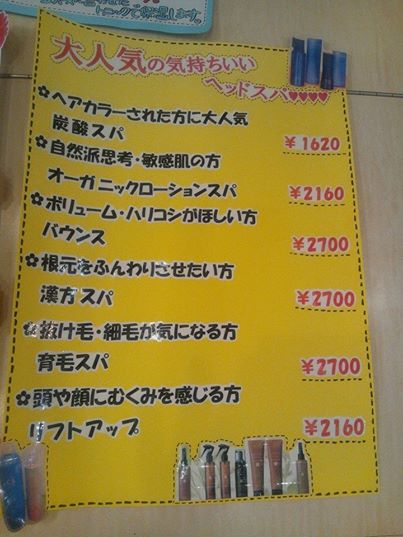 トニックで保湿します。
大人気の気持ちいい
ヘッドスパ♥♥♥♥
✿ヘアカラーされた方に大人気
炭酸スパ ￥1620
✿自然派思考・敏感肌の方
オーガニックローションスパ ￥2160
✿ボリューム・ハリコシがほしい方
バウンス ￥2700
✿根元をふんわりさせたい方
漢方スパ ￥2700
✿抜け毛・細毛が気になる方
育毛スパ ￥2700
✿頭や顔にむくみを感じる方
リフトアップ ￥2160